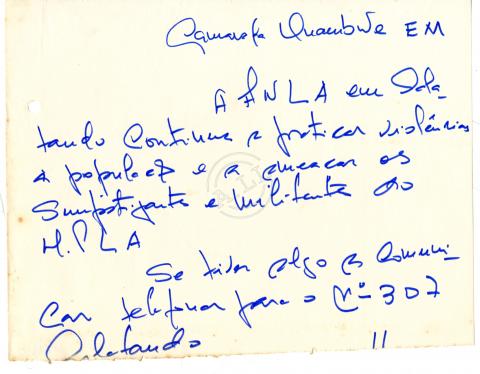 Camarada Quambwe EM
A FNLA em Dala
tando Continua a praticar violências
a população e a ameaçar os
Simpatizantes e militantes do
M.P.L.A
Se tiver algo a Comuni
car telefonar para o Nº 307
Dalatando 11